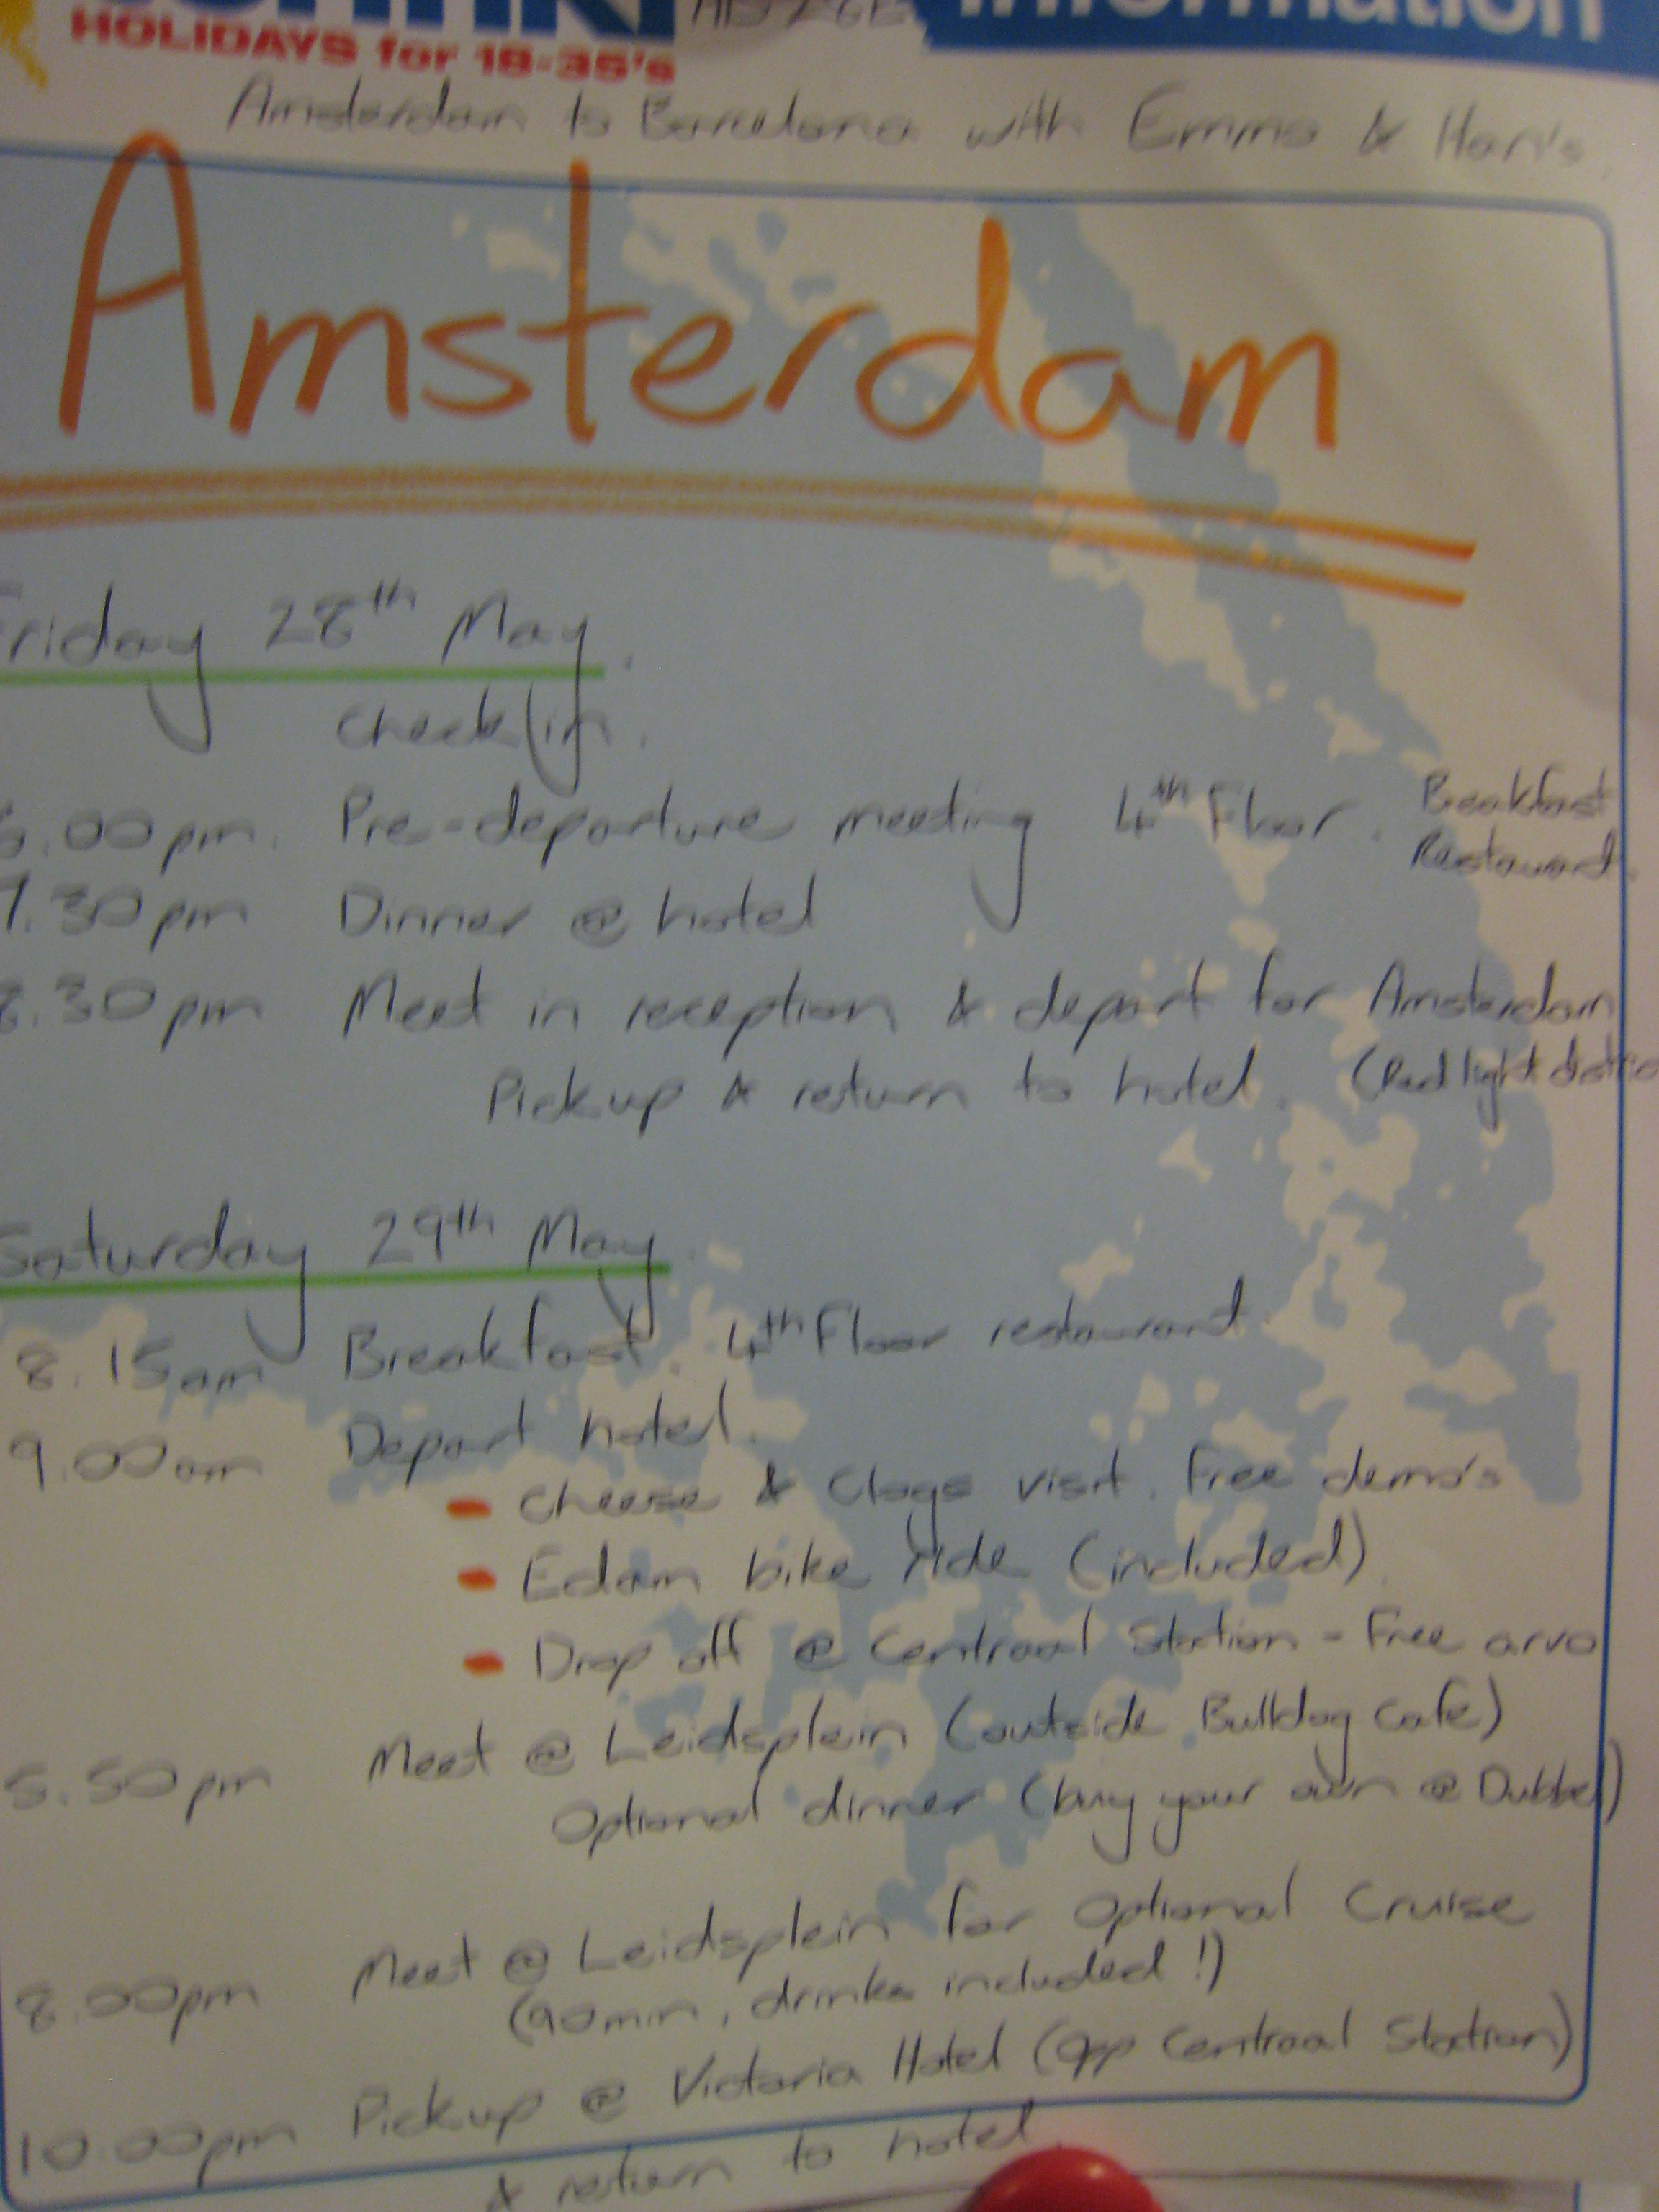 information
HOLIDAYS for 18-35's
Amsterdam to Barcelona with Emma & Hari's.
Amsterdam
Friday 28th May.
Check in.
6.00pm. Pre-departure meeting 4th Floor. Breakfast
Restaurant.
7.30pm Dinner @ hotel
8.30pm Meet in reception & depart for Amsterdam
Pickup & return to hotel. (Red light distric
Saturday 29th May.
8.15am Breakfast. 4th Floor restaurant.
9.00am Depart hotel.
- Cheese & Clogs visit. Free demo's
- Edam bike ride (included).
- Drop off @ Centraal Station - Free arvo
5.50pm Meet @ Leidsplein (outside Bulldog Cafe)
Optional dinner (buy your own @ Dubbel)
8.00pm Meet @ Leidsplein for Optional Cruise
(90min, drinks included!)
10.00pm Pickup @ Victoria Hotel (opp Centraal Station)
& return to hotel.